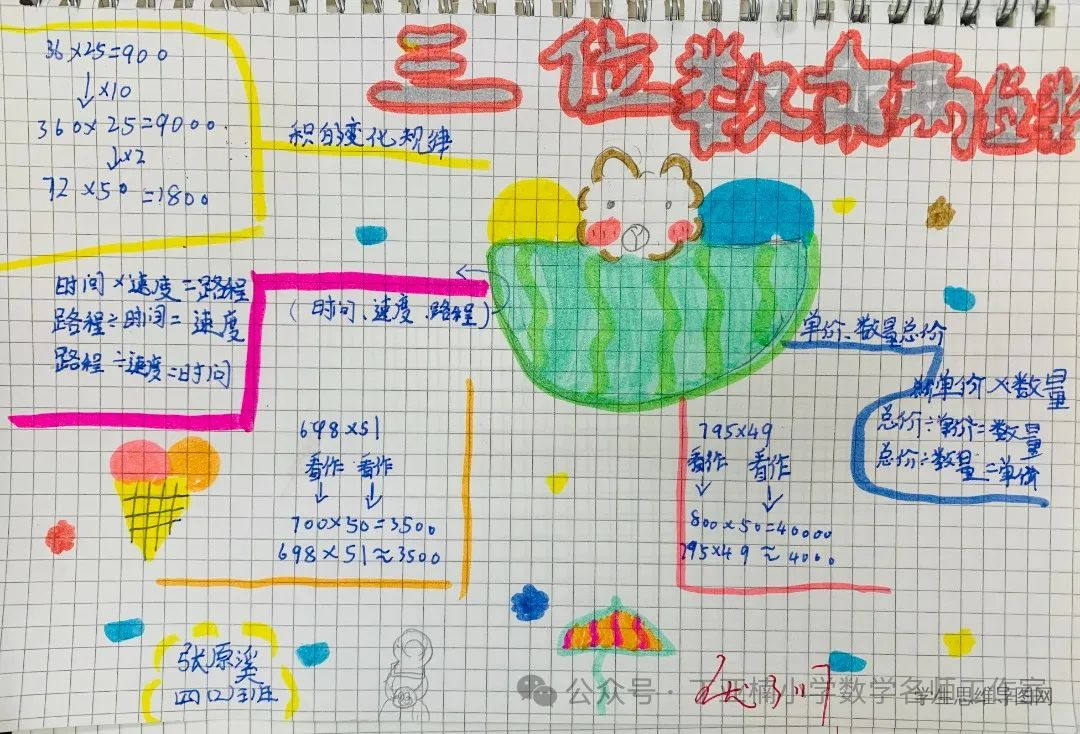 三位数乘两位数
36×25=900
↓×10
360×25=9000
↓×2
72×50=1800
积的变化规律
时间×速度=路程
路程÷时间=速度
路程÷速度=时间
(时间、速度、路程)
单价、数量总价
单价×数量
总价÷单价=数量
总价÷数量=单价
698×51
看作 看作
↓ ↓
700×50=3500
698×51≈3500
795×49
看作 看作
↓ ↓
800×50=40000
795×49≈4000
张原溪
四(2)班
公众号·丁亚楠小学数学名师工作室
学生思维导图网